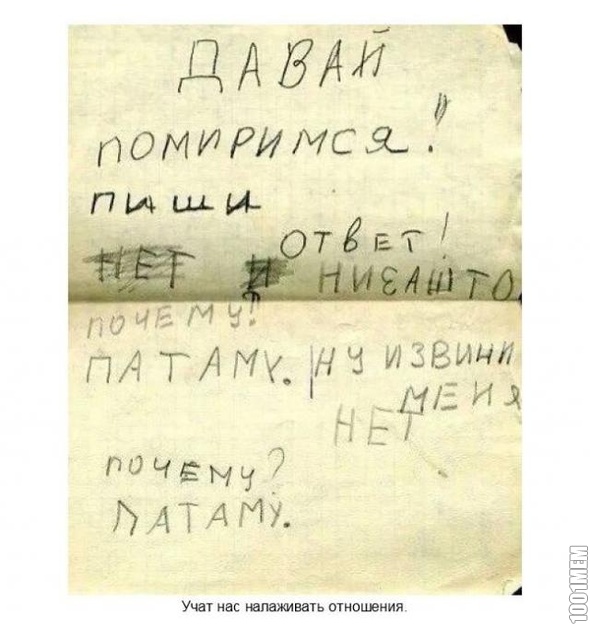 ДАВАЙ
ПОМИРИМСЯ!
ПИШИ
ОТВЕТ!
НЕТ И НИЗАШТО
ПОЧЕМУ?
ПАТАМУ. НУ ИЗВИНИ
МЕНЯ
НЕТ
ПОЧЕМУ?
ПАТАМУ.
Учат нас налаживать отношения.
1001МЕМ